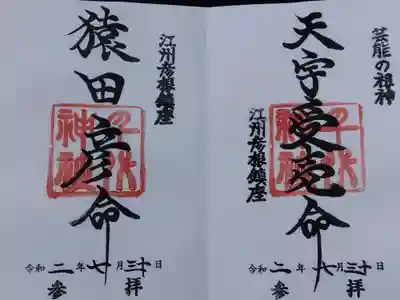 芸能の祖神
天宇受売命
江州彦根鎮座
千代神社
令和二年七月三十日
参拝
江州彦根鎮座
猿田彦命
千代神社
令和二年七月三十日
参拝